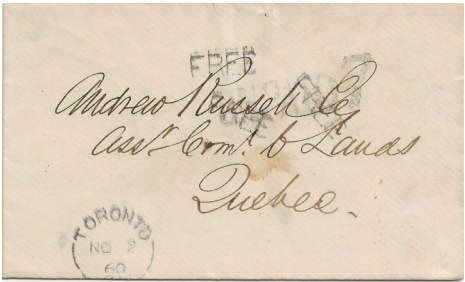 FREE
Andrew Russell Eq
Asst Comr C Lands
Quebec.
TORONTO
NO 2
60